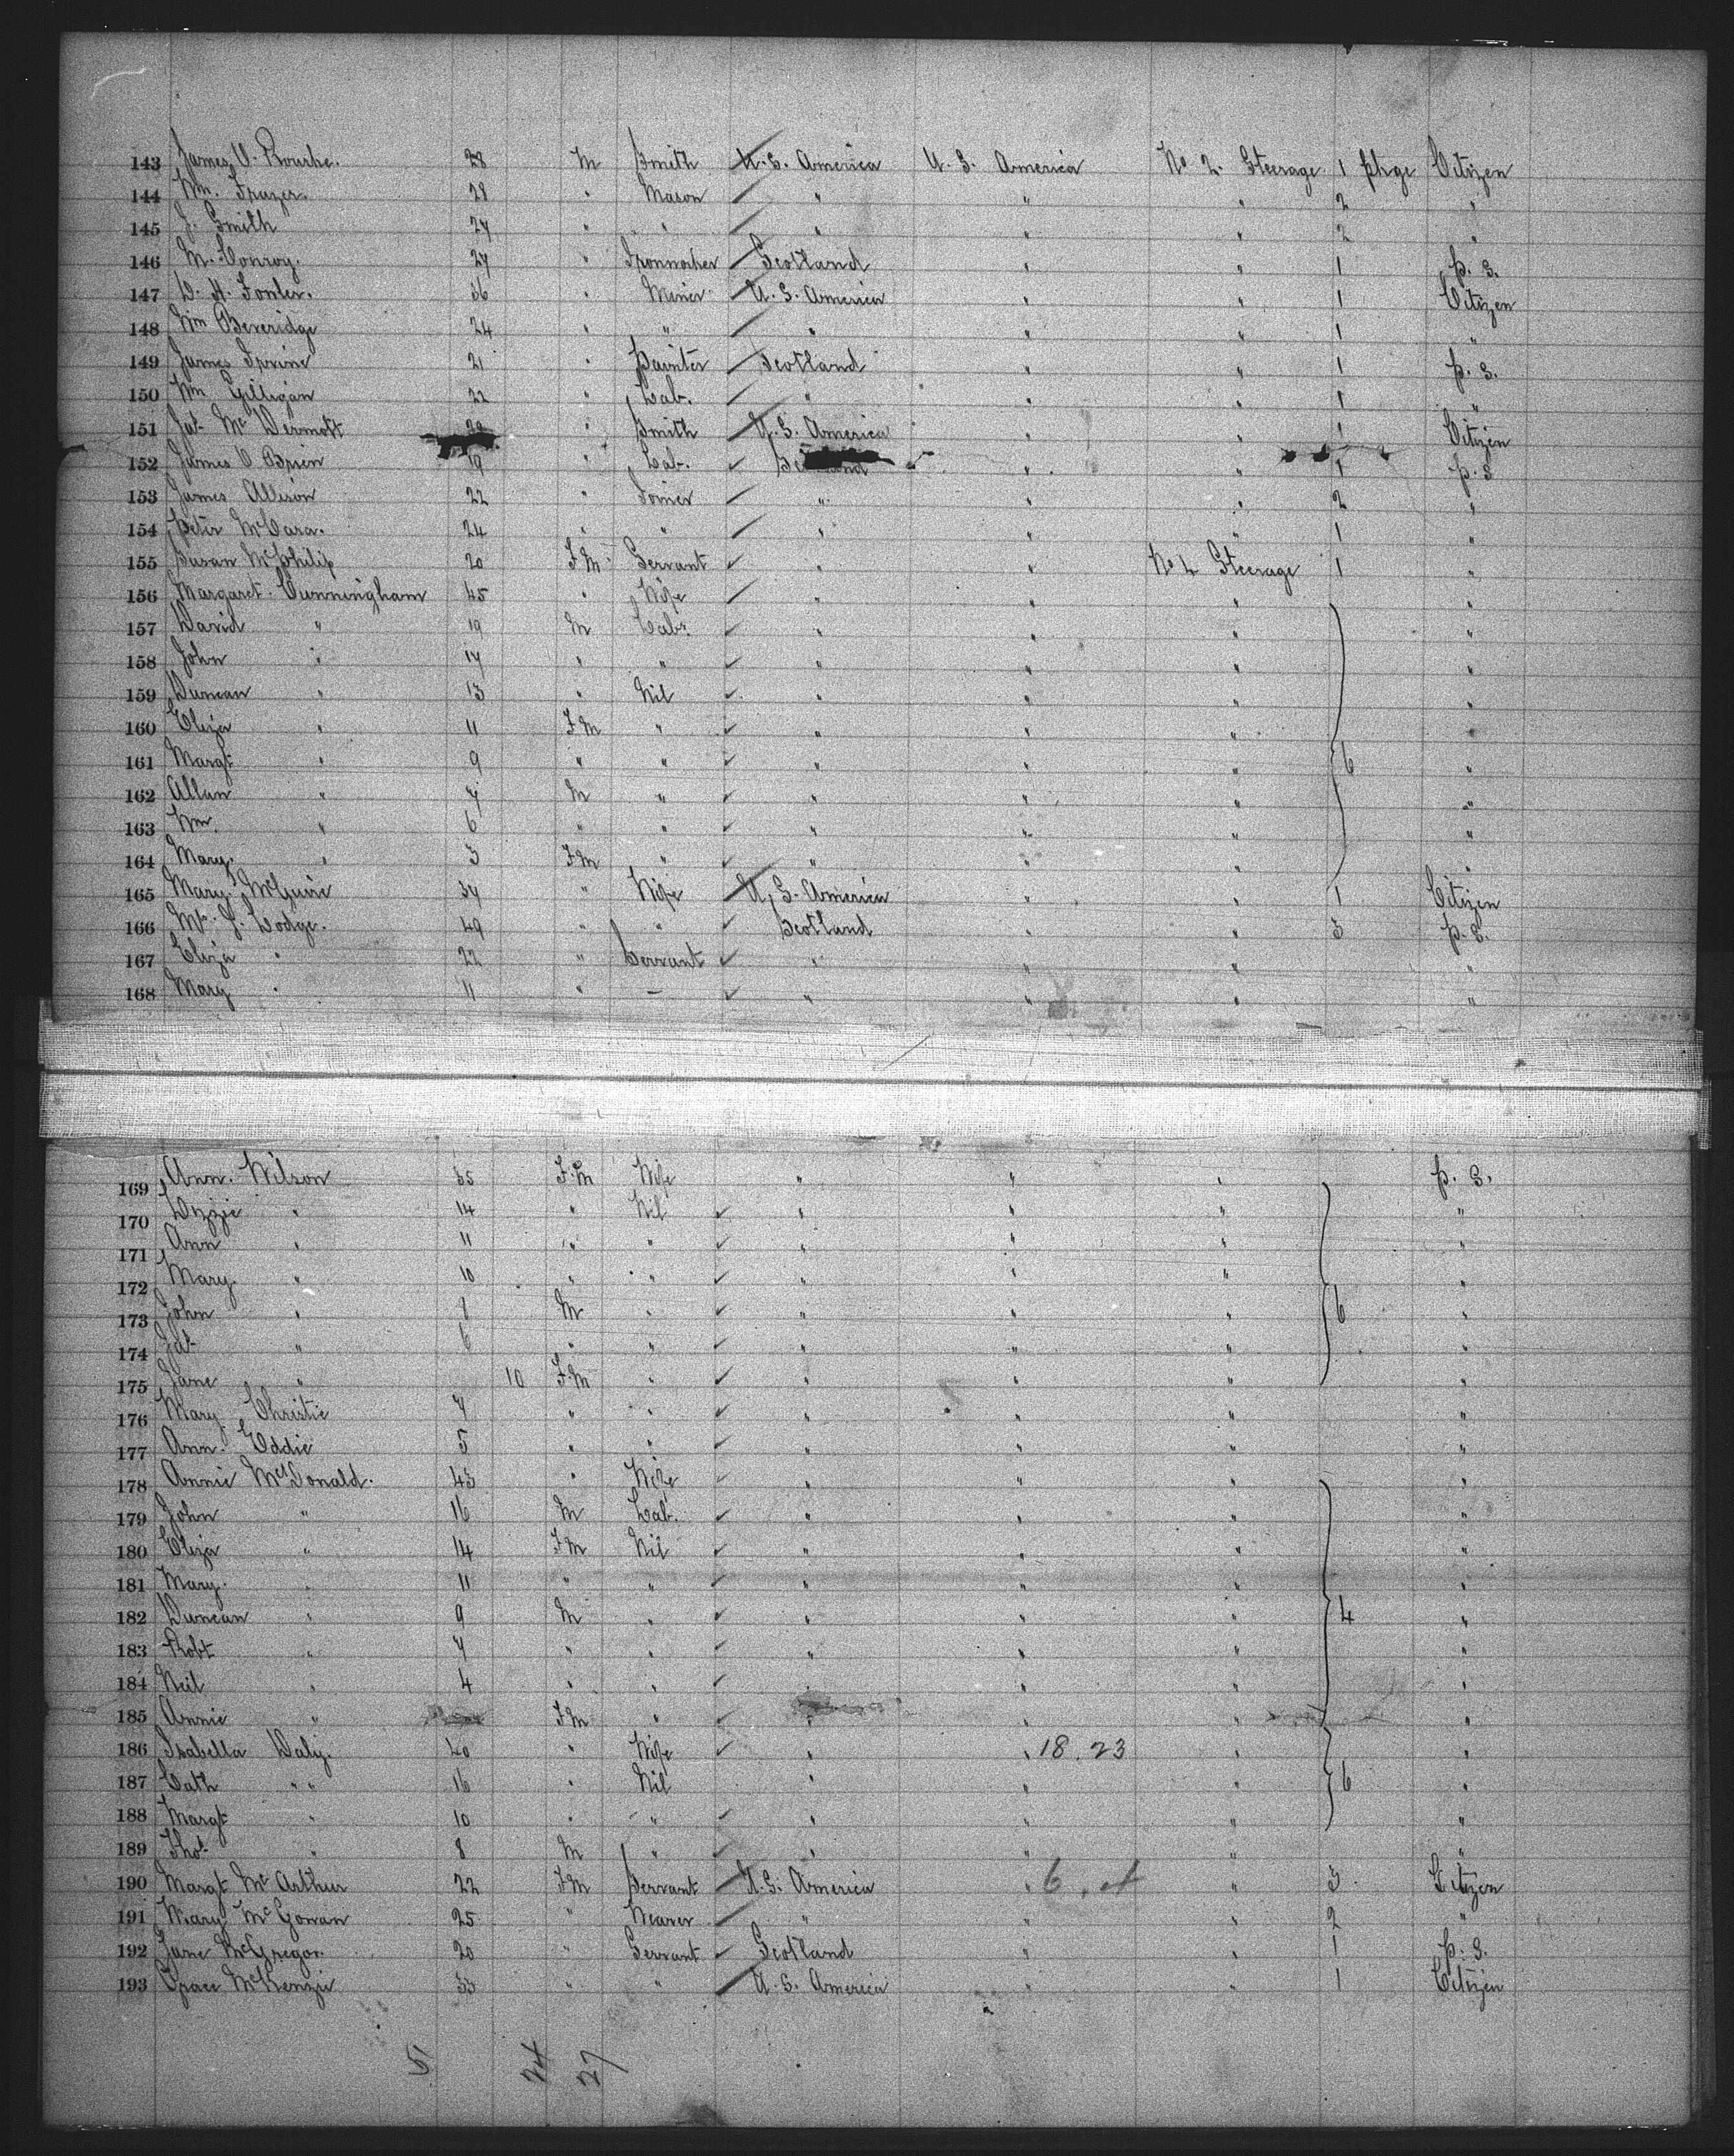 143 James O. Rourke. 28 M Smith U.S. America U. S. America No 2. Steerage 1 pkge Citizen
144 Wm. Frazer. 28 " Mason " " " 2 "
145 J. Smith 24 " " " " " 2 "
146 M. Conroy. 27 " Scotland " " 1 p. s.
147 36 " Miner U. S. America " " 1 Citizen
148 Wm Beveridge 24 " " " " " 1 "
149 James Irvine 21 " Painter Scotland " " 1 p. s.
150 Wm Gilligan 22 " Lab. " " " 1 "
151 Jas. McDermott " Smith U.S. America " " 1 Citizen
152 James O Brien 19 " Lab. " " 1 p. s
153 James Allison 22 " Joiner " " " 2 "
154 Peter McCara. 24 " " " " " 1 "
155 Susan McPhilip 20 Fm Servant " " No 2 Steerage 1 "
156 Margaret. Cunningham 45 " Wife " " " "
157 David " 19 M Labr. " " " "
158 John " 17 " " " " " "
159 Duncan " 13 " Nil " " " "
160 Eliza " 11 Fm " " " " "
161 Margt " 9 " " " " " 6 "
162 Allan " 7 M " " " " "
163 Wm. " 6 " " " " " "
164 Mary. " 3 Fm " " " " "
165 Mary McGuire 34 " Wife U. S. America " " 1 Citizen
166 Mrs. J. Dodge. 49 " " Scotland " " 3 p. s.
167 Eliza " 22 " Servant " " " "
168 Mary " 11 " — " " " "
169 Ann. Wilson 35 F.m Wife " " " p. s.
170 Lizzie " 14 " Nil " " " "
171 Ann " 11 " " " " " "
172 Mary. " 10 " " " " " "
173 John " 8 M " " " " 6 "
174 Jas. " 6 " " " " " "
175 Jane " 10 F.m " " " " "
176 Mary Christie 7 " " " " " "
177 Ann. Eddie 5 " " " " " "
178 Annie McDonald. 45 " Wife " " " "
179 John " 16 M Lab. " " " "
180 Eliza " 14 Fm Nil " " " "
181 Mary. " 11 " " " " " "
182 Duncan " 9 M " " " " 4 "
183 Robt " 7 " " " " " "
184 Neil " 4 " " " " " "
185 Annie " Fm " " " " "
186 Isabella Daly. 40 " Wife " " 18.23 " "
187 Cath " 16 " Nil " " " 6 "
188 Margt " 10 " " " " " "
189 Thos. " 8 M " " " " "
190 Margt McArthur 22 Fm Servant U.S. America " " 3 Citizen
191 Mary McGowan 25 " Weaver " " " 2 "
192 Jane McGregor. 20 " Servant Scotland " " 1 p. s.
193 Grace McKenzie 33 " " U. S. America " " 1 Citizen
51 24 27